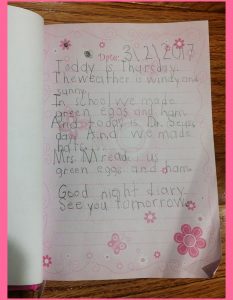 Date: 3/2/2017
Today is Thursday.
The weather is windy and
sunny.
In school we made
green eggs and ham.
And today is Dr. Seuss
day. And we made
hats.
Mrs. M read us
green eggs and ham.
Good night diary.
See you tomorrow.